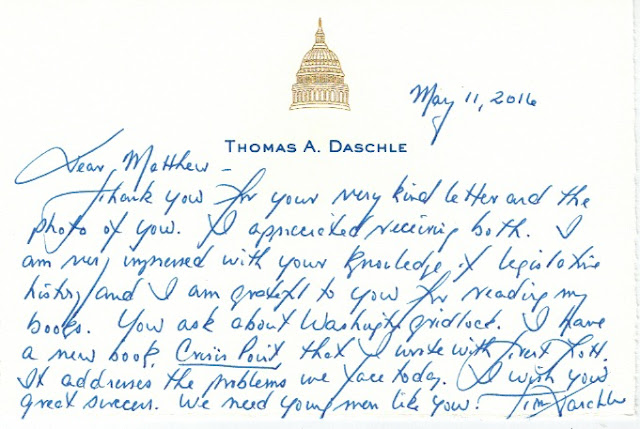 May 11, 2016
THOMAS A. DASCHLE
Dear Matthew -
Thank you for your very kind letter and the
photo of you. I appreciated receiving both. I
am very impressed with your knowledge of legislative
history and I am grateful to you for reading my
books. You ask about Washington gridlock. I have
a new book, Crisis Point that I wrote with Trent Lott.
It addresses the problems we face today. I wish you
great success. We need young men like you. Tom Daschle